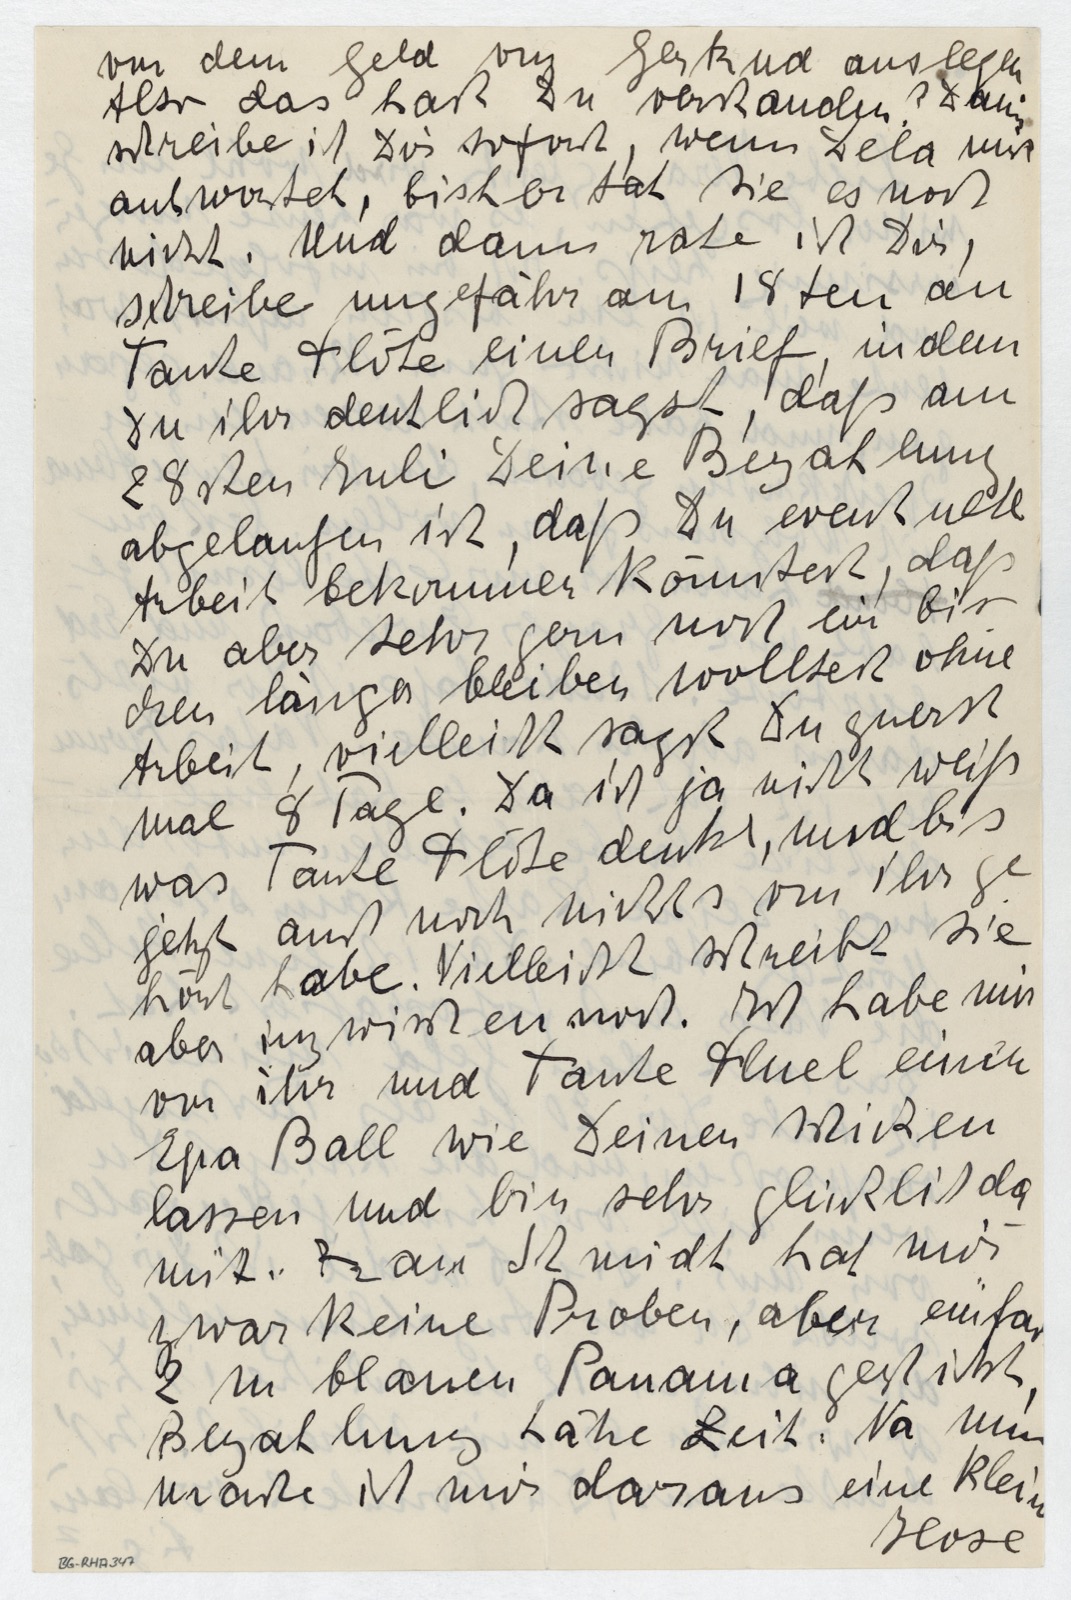 von dem Geld von Gertrud auslegen
Also das hast Du verstanden? Dann
schreibe ich Dir sofort, wenn Lela mir
antwortet, bisher tat sie es noch
nicht. Und dann rate ich Dir,
schreibe ungefähr am 18ten an
Tante Flöte einen Brief, indem
Du ihr deutlich sagst, daß am
28sten Juli Deine Bezahlung
abgelaufen ist, daß Du eventuell
Arbeit bekommen könntest, daß
Du aber sehr gern noch ein bis-
chen länger bleiben wolltest ohne
Arbeit, vielleicht sagst Du zuerst
mal 8 Tage. Da ich ja nicht weiß
was Tante Flöte denkt, und bis
jetzt auch noch nichts von ihr ge
hört habe. Vielleicht schreibt sie
aber inzwischen noch. Ich habe mir
von ihr und Tante Fluel einen
Epa Ball wie Deinen schicken
lassen und bin sehr glücklich da
mit. Frau Schmidt hat mir
zwar keine Proben, aber einfa
2 m blauen Panama geschickt,
Bezahlung hätte Zeit. Na nun
mache ich mir daraus eine klein
Hose
BG-RHA347